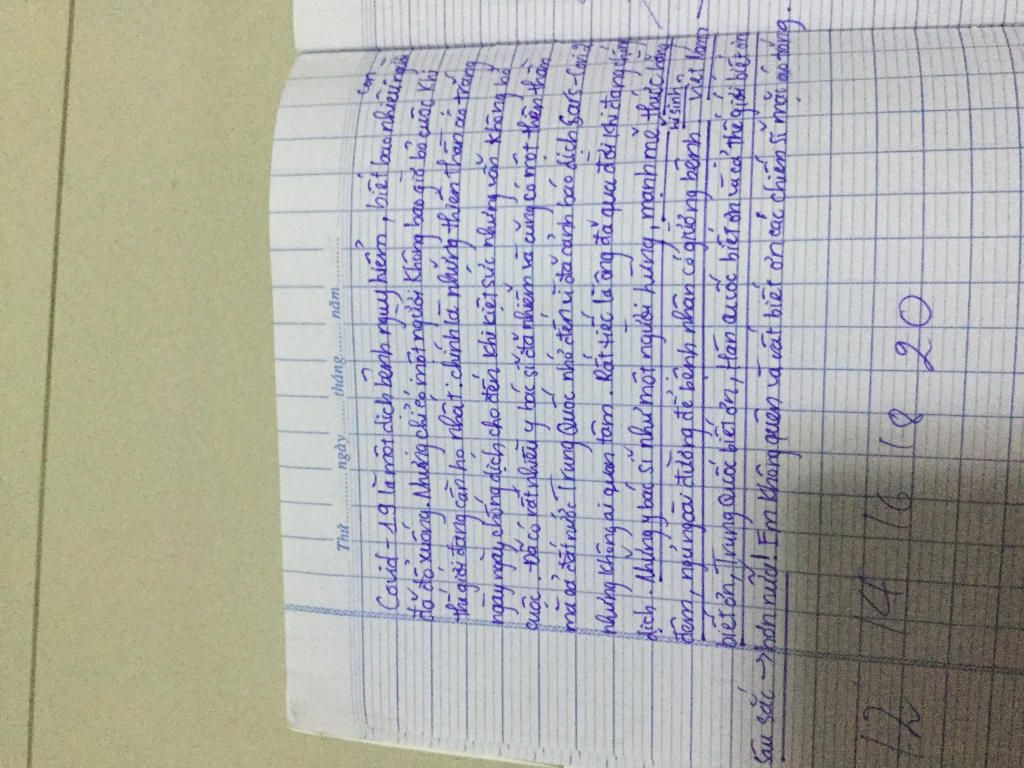 Thứ ngày tháng năm
con
Covid-19 là một dịch bệnh nguy hiểm, biết bao nhiêu người
đã đổ xuống. Nhưng chỉ có một người không bao giờ bỏ cuộc khi
thế giới đang cần họ nhất: chính là những thiên thần áo trắng
ngày ngày chống dịch cho đến khi kiệt sức nhưng vẫn không bỏ
cuộc. Đã có rất nhiều y bác sĩ đã nhiễm và cũng có một thiên thần
mà cả đất nước Trung Quốc nhớ đến vì đã cảnh báo dịch
nhưng không ai quan tâm. Rất tiếc là ông đã qua đời khi đang chống
dịch. Những y bác sĩ như một người hùng, mạnh mẽ thức hằng
hi sinh
đêm, ngủ ngoài đường để bệnh nhân có giường bệnh Việt Nam
biết ơn, Trung Quốc biết ơn, Hàn Quốc biết ơn và cả thế giới biết ơn
sâu sắc → hơn nữa! Em không quên và rất biết ơn các chiến sĩ mặc áo trắng.
12 14 16 18 20